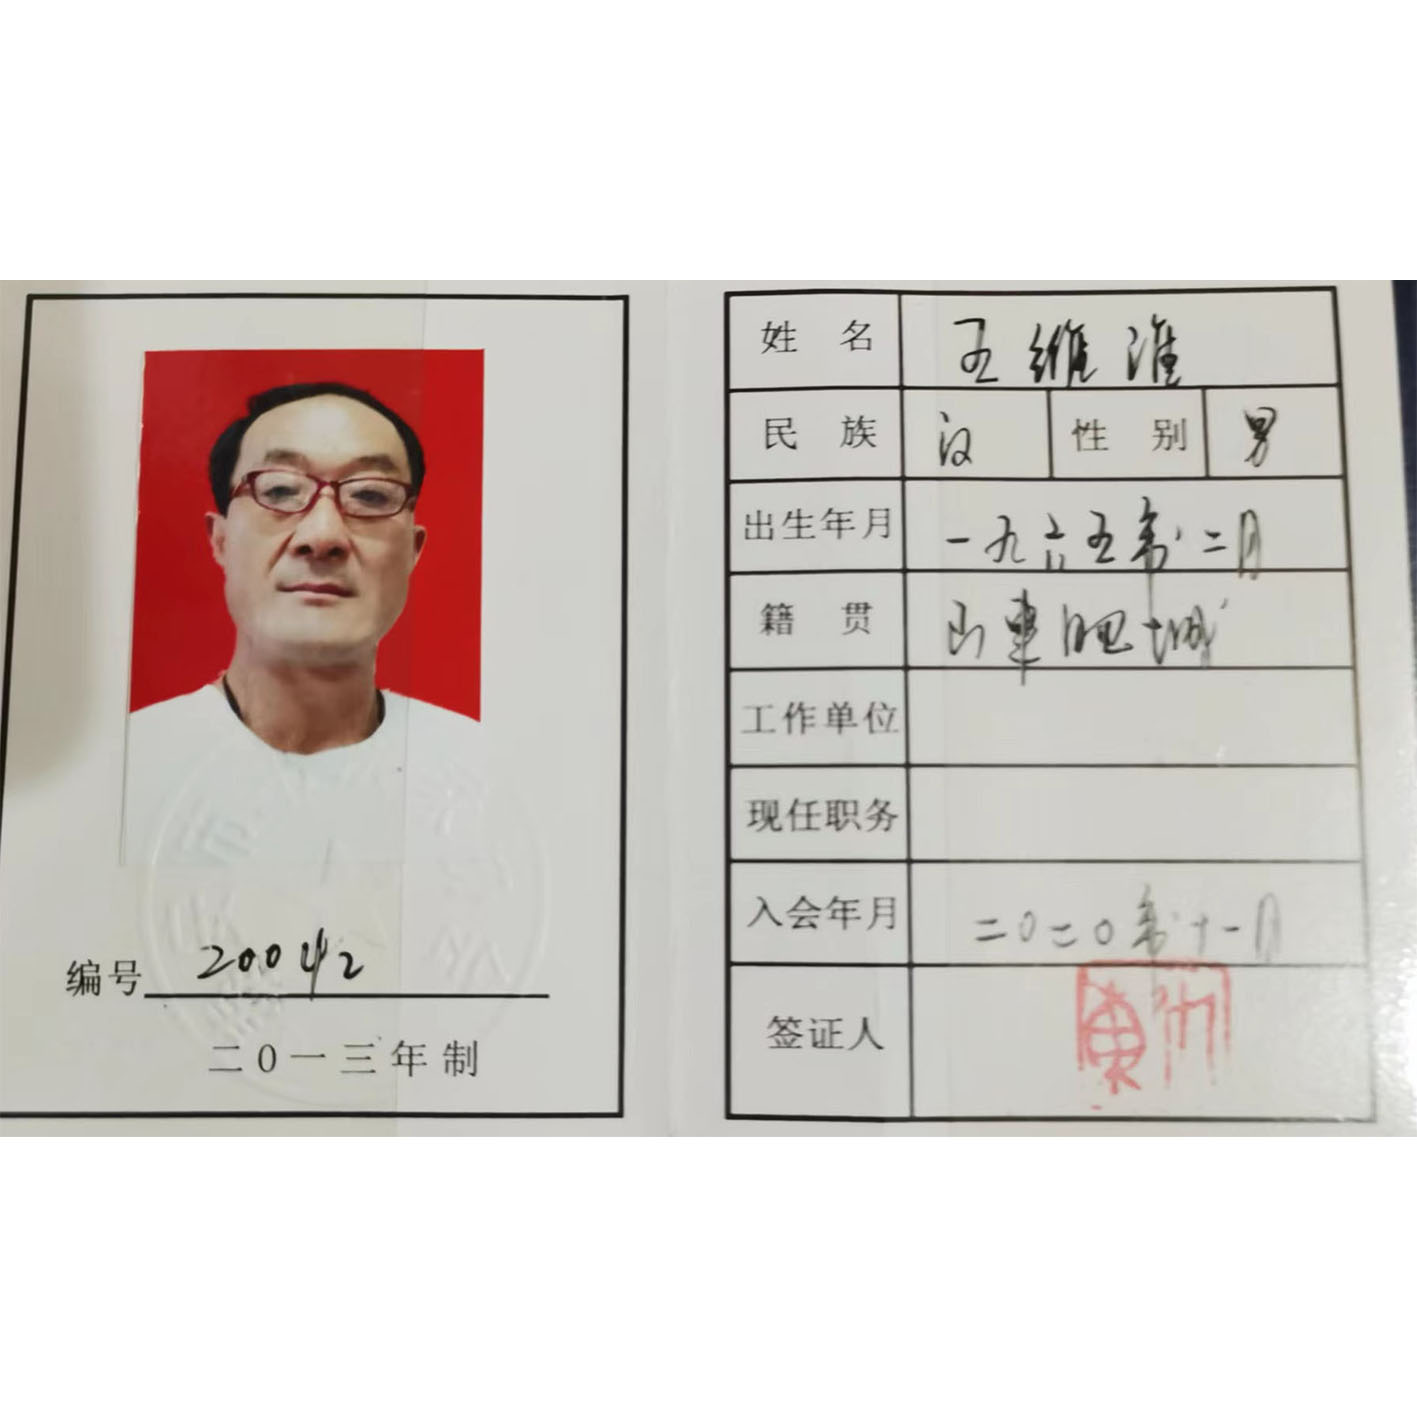 编号 200042
二〇一三年制
姓名 王维淮
民族 汉 性别 男
出生年月 一九六五年二月
籍贯 山东肥城
工作单位
现任职务
入会年月 二〇二〇年十一月
签证人